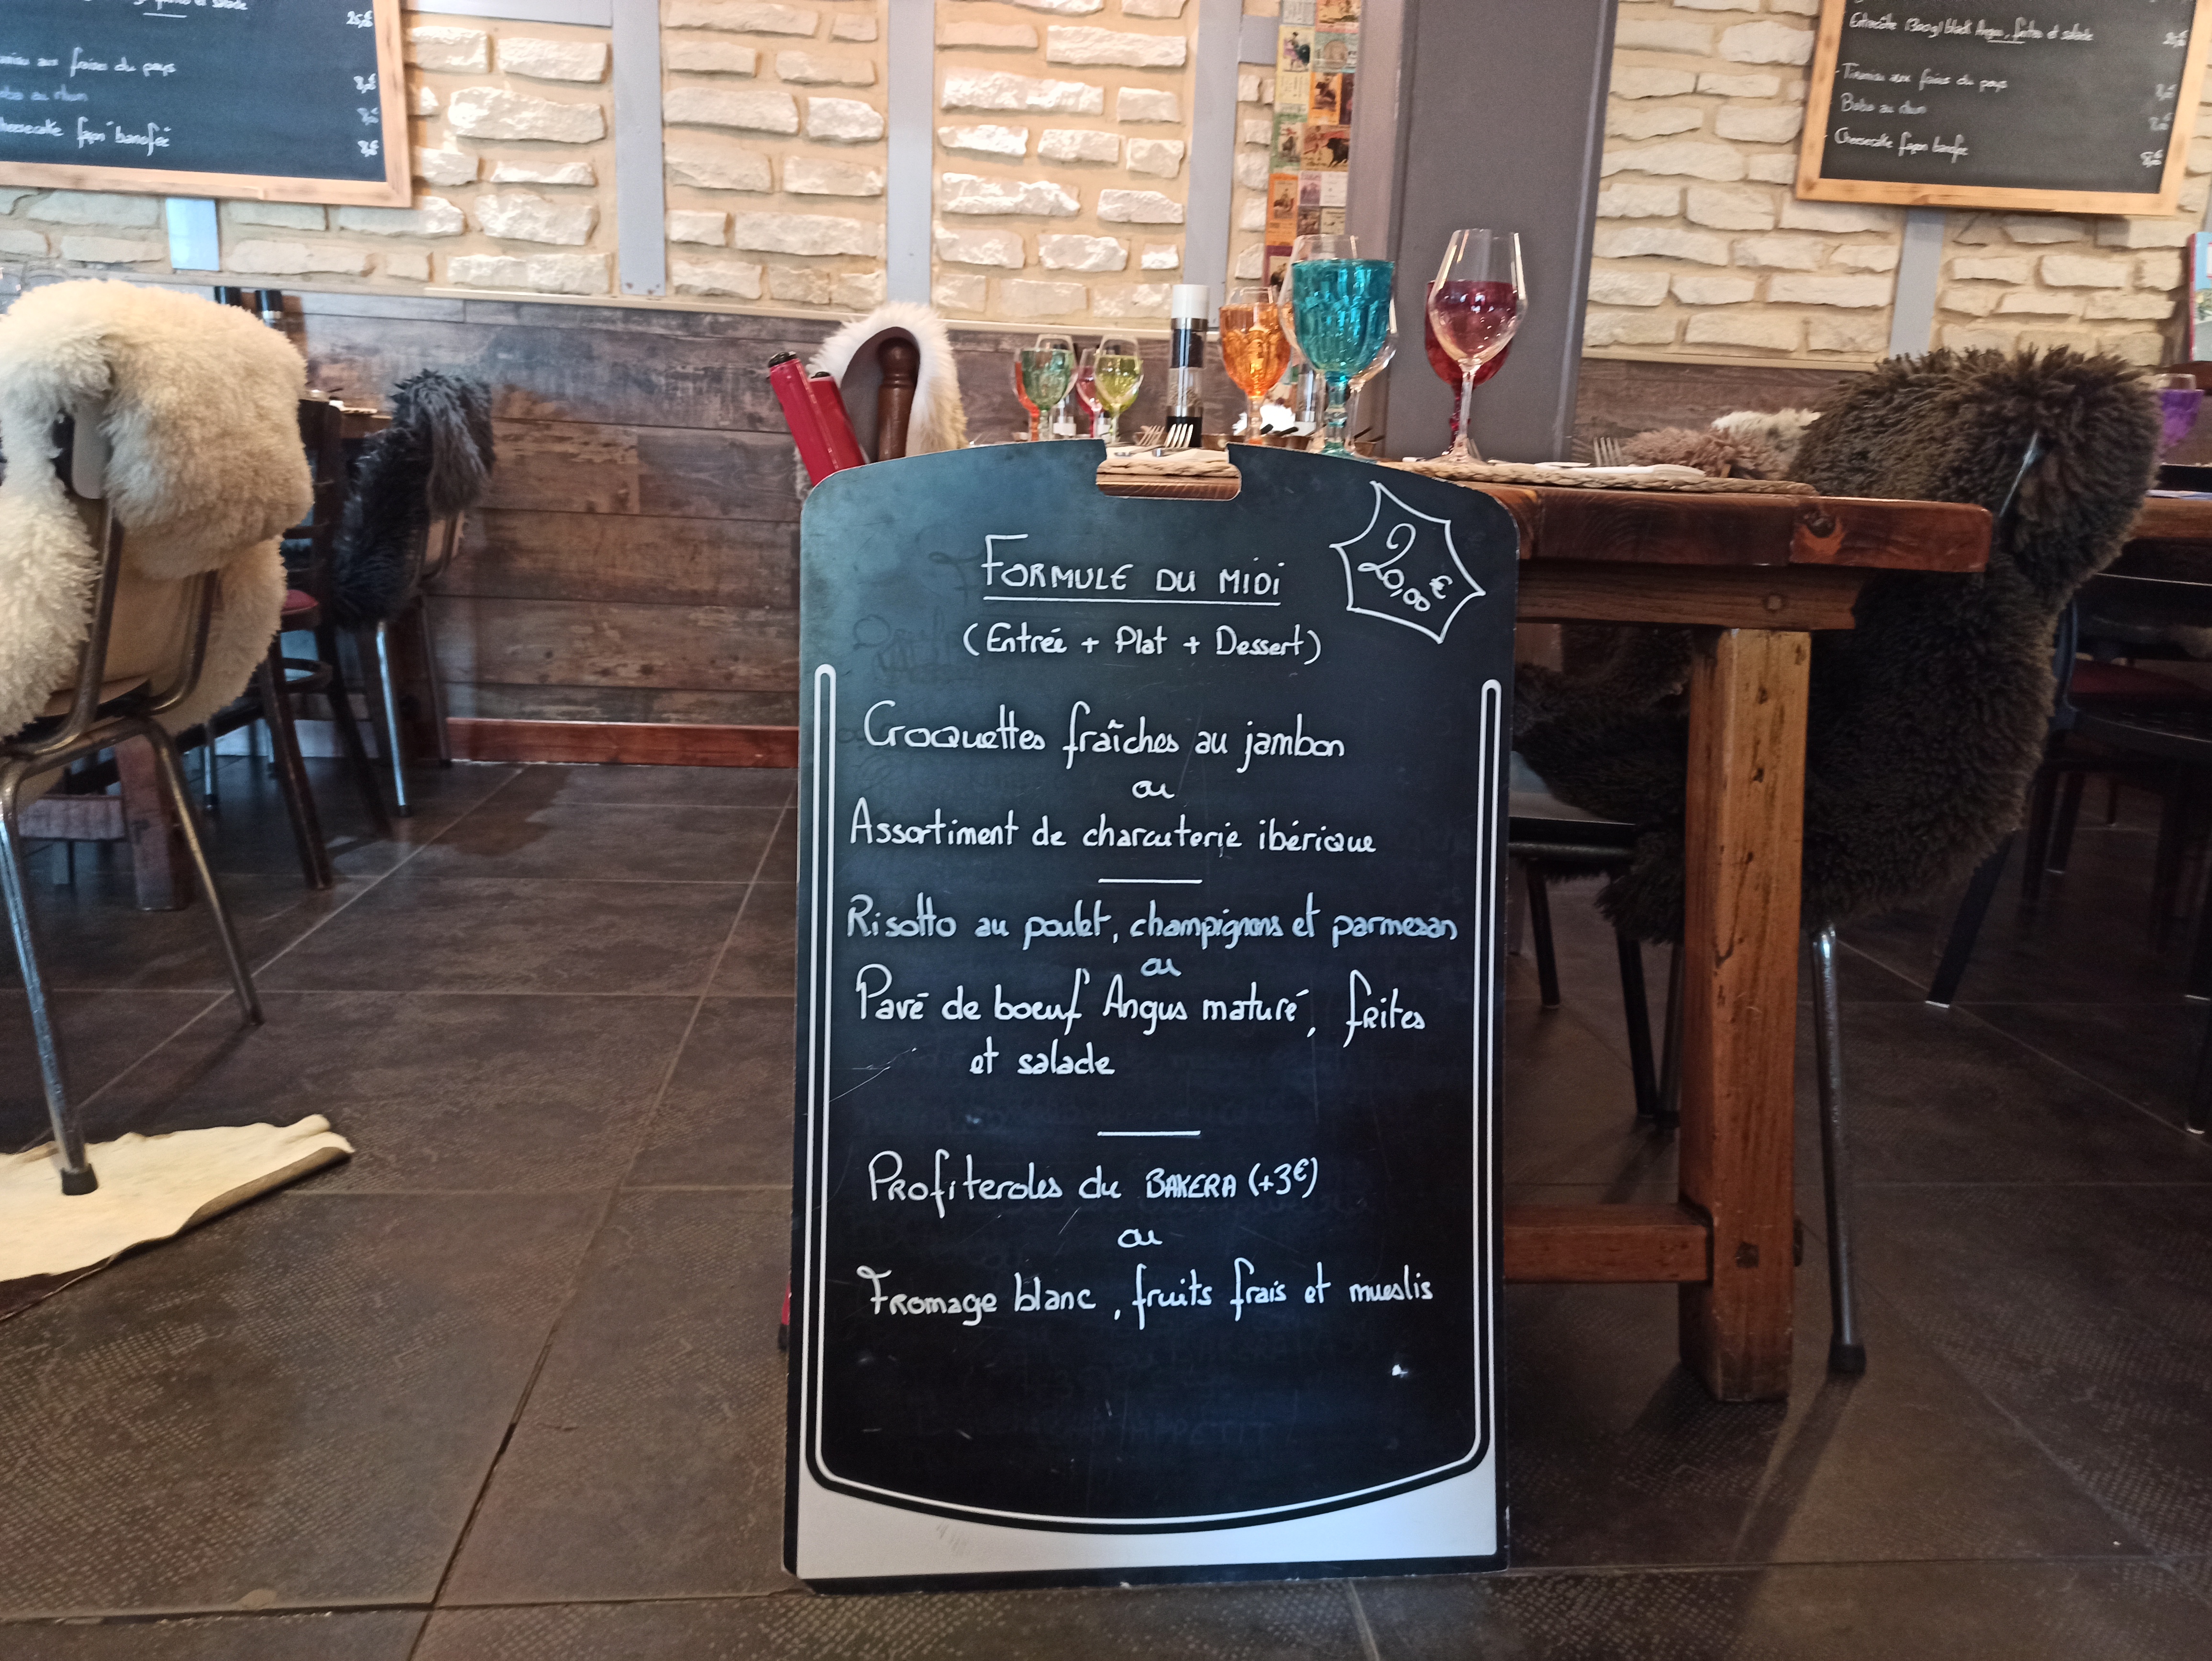 fraises du pays
8,5€
Cheesecake façon banofée
8,5€
Entrecôte (300g) black Angus, frites et salade
Tiramisu aux fraises du pays
Baba au rhum
Cheesecake façon banofée
FORMULE DU MIDI
20,00€
(Entrée + Plat + Dessert)
Croquettes fraîches au jambon
ou
Assortiment de charcuterie ibérique
Risotto au poulet, champignons et parmesan
ou
Pavé de boeuf Angus maturé, frites
et salade
Profiteroles du BAKERA (+3€)
ou
Fromage blanc, fruits frais et mueslis